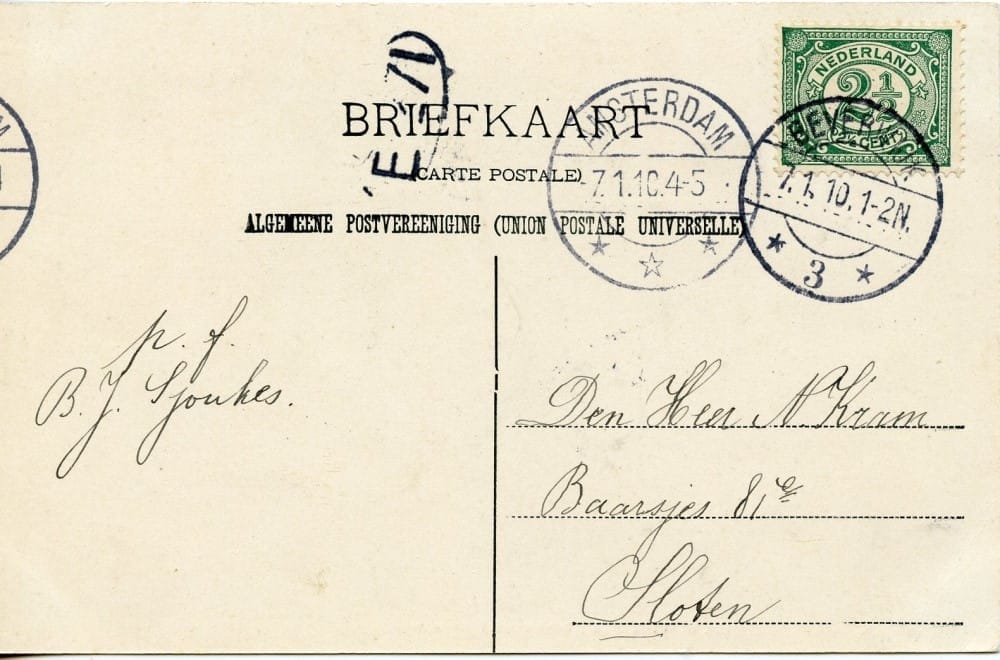 BRIEFKAART
(CARTE POSTALE)
ALGEMEENE POSTVEREENIGING (UNION POSTALE UNIVERSELLE)
NEDERLAND
2½
2½ CENT
AMSTERDAM
7.1.10.4-5
BEVERWIJK
7.1.10.1-2N.
3
p. f.
B. J. Sjoukes.
Den Heer N Kram
Baarsjes 81
Sloten